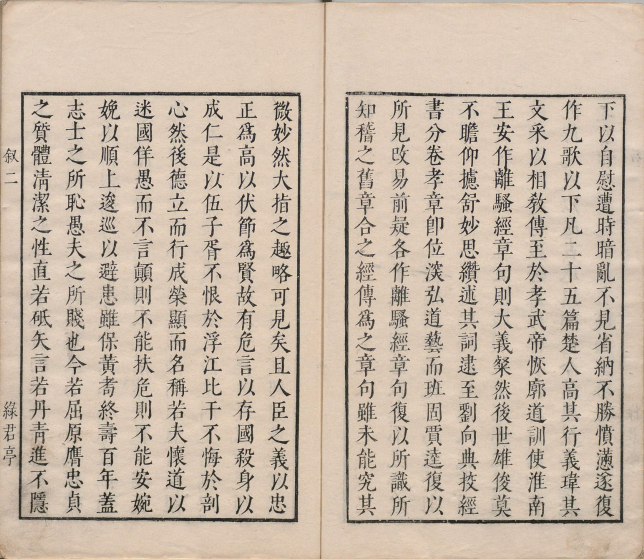 下以自慰遭時暗亂不見省納不勝憤懣遂復
作九歌以下凡二十五篇楚人高其行義瑋其
文采以相敎傳至於孝武帝恢廓道訓使淮南
王安作離騷經章句則大義粲然後世雄俊莫
不瞻仰攄舒妙思纘述其詞逮至劉向典挍經
書分卷孝章卽位湥弘道藝而班固賈逵復以
所見改易前疑各作離騷經章句復以所識所
知稽之舊章合之經傳爲之章句雖未能究其
微妙然大指之趣略可見矣且人臣之義以忠
正爲高以伏節爲賢故有危言以存國殺身以
成仁是以伍子胥不恨於浮江比干不悔於剖
心然後德立而行成榮顯而名稱若夫懷道以
迷國佯愚而不言顚則不能扶危則不能安婉
娩以順上逡巡以避患雖保黃耉終壽百年蓋
志士之所恥愚夫之所賤也今若屈原膺忠貞
之質體淸潔之性直若砥矢言若丹靑進不隱
叙二
綠君亭